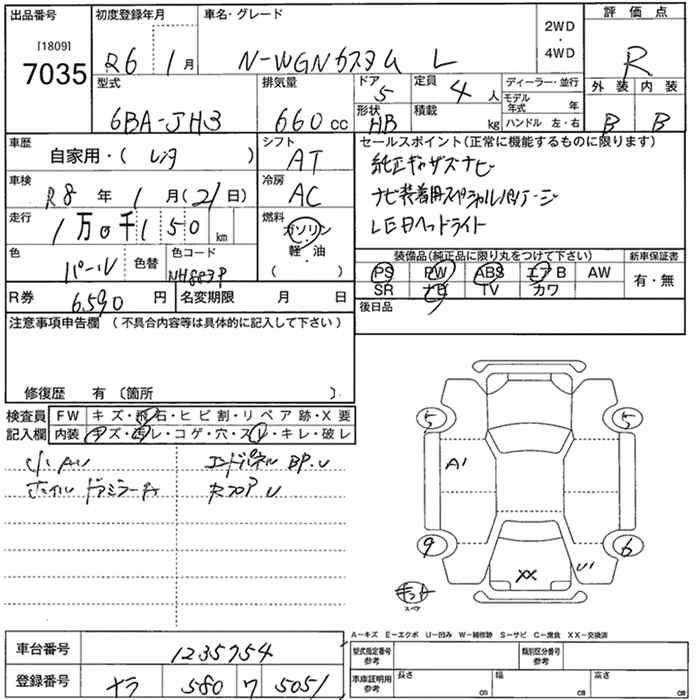 出品番号 初度登録年月 車名・グレード 評価点
[1809] 7035
R6 1月 N-WGNカスタム L 2WD・4WD R
型式 排気量 ドア 5 定員 4人 ディーラー・並行 外装 内装
6BA-JH3 660cc 形状 HB 積載 kg モデル年式 年 ハンドル 左・右 B B
車歴 シフト セールスポイント(正常に機能するものに限ります)
自家用・( レンタ ) AT 純正ギャザズナビ
車検 冷房 ナビ装着用スペシャルパッケージ
R8年 1月(21日) AC LEDヘッドライト
走行 燃料
1万0千150km ガソリン
軽・油
( )
色 色替 色コード 装備品(純正品に限り丸をつけて下さい) 新車保証書
パール NH883P PS PW ABS エアB AW 有・無
R券 6,590円 名変期限 月 日 SR ナビ TV カワ
後日品
注意事項申告欄(不具合内容等は具体的に記入して下さい)
修復歴 有〔箇所 〕
検査員 FW キズ・飛石・ヒビ割・リペア跡・X要
記入欄 内装 キズ・汚レ・コゲ・穴・スレ・キレ・破レ
エンドパネル BP.U
ホイル ドアミラーA
5 5
A1
9 6
XX U1
キット
スペア
A-キズ E-エクボ U-凹み W-補修跡 S-サビ C-腐食 XX-交換済
車台番号 1235754 型式指定番号 参考 類別区分番号 参考
登録番号 ナラ 580 ワ 5051 車庫証明用 参考 長さ cm 幅 cm 高さ cm